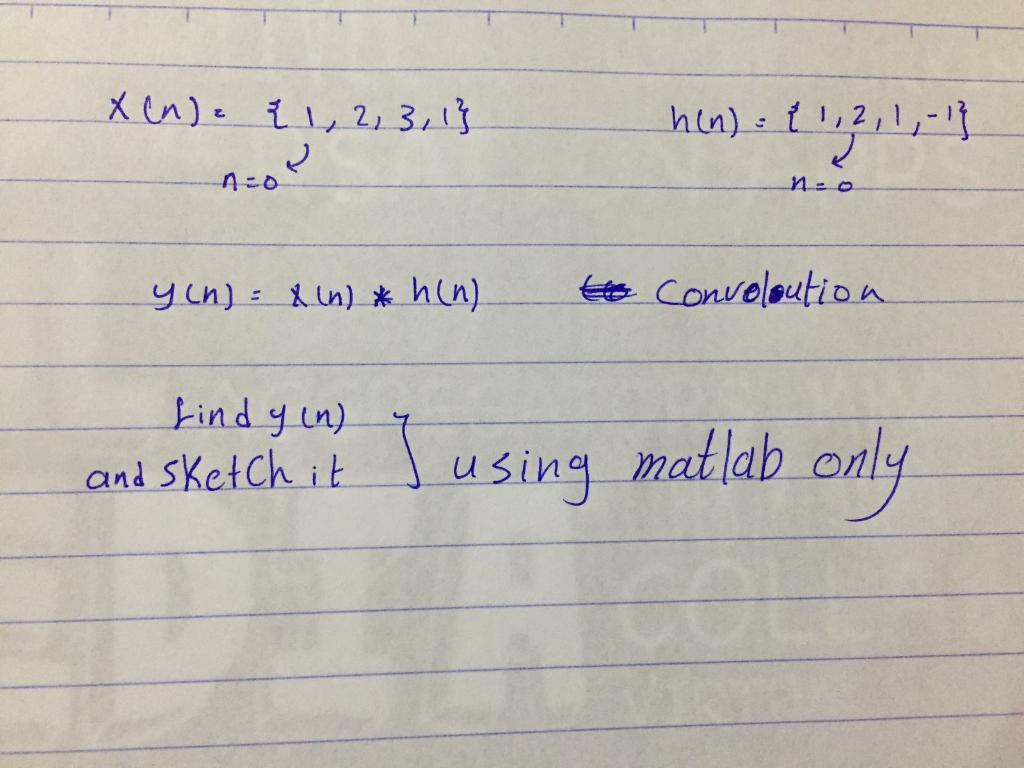 x(n) = {1, 2, 3, 1} h(n) = {1, 2, 1, -1}
n=0 n=0
y(n) = x(n) * h(n) Conveloution
find y(n)
and sketch it } using matlab only